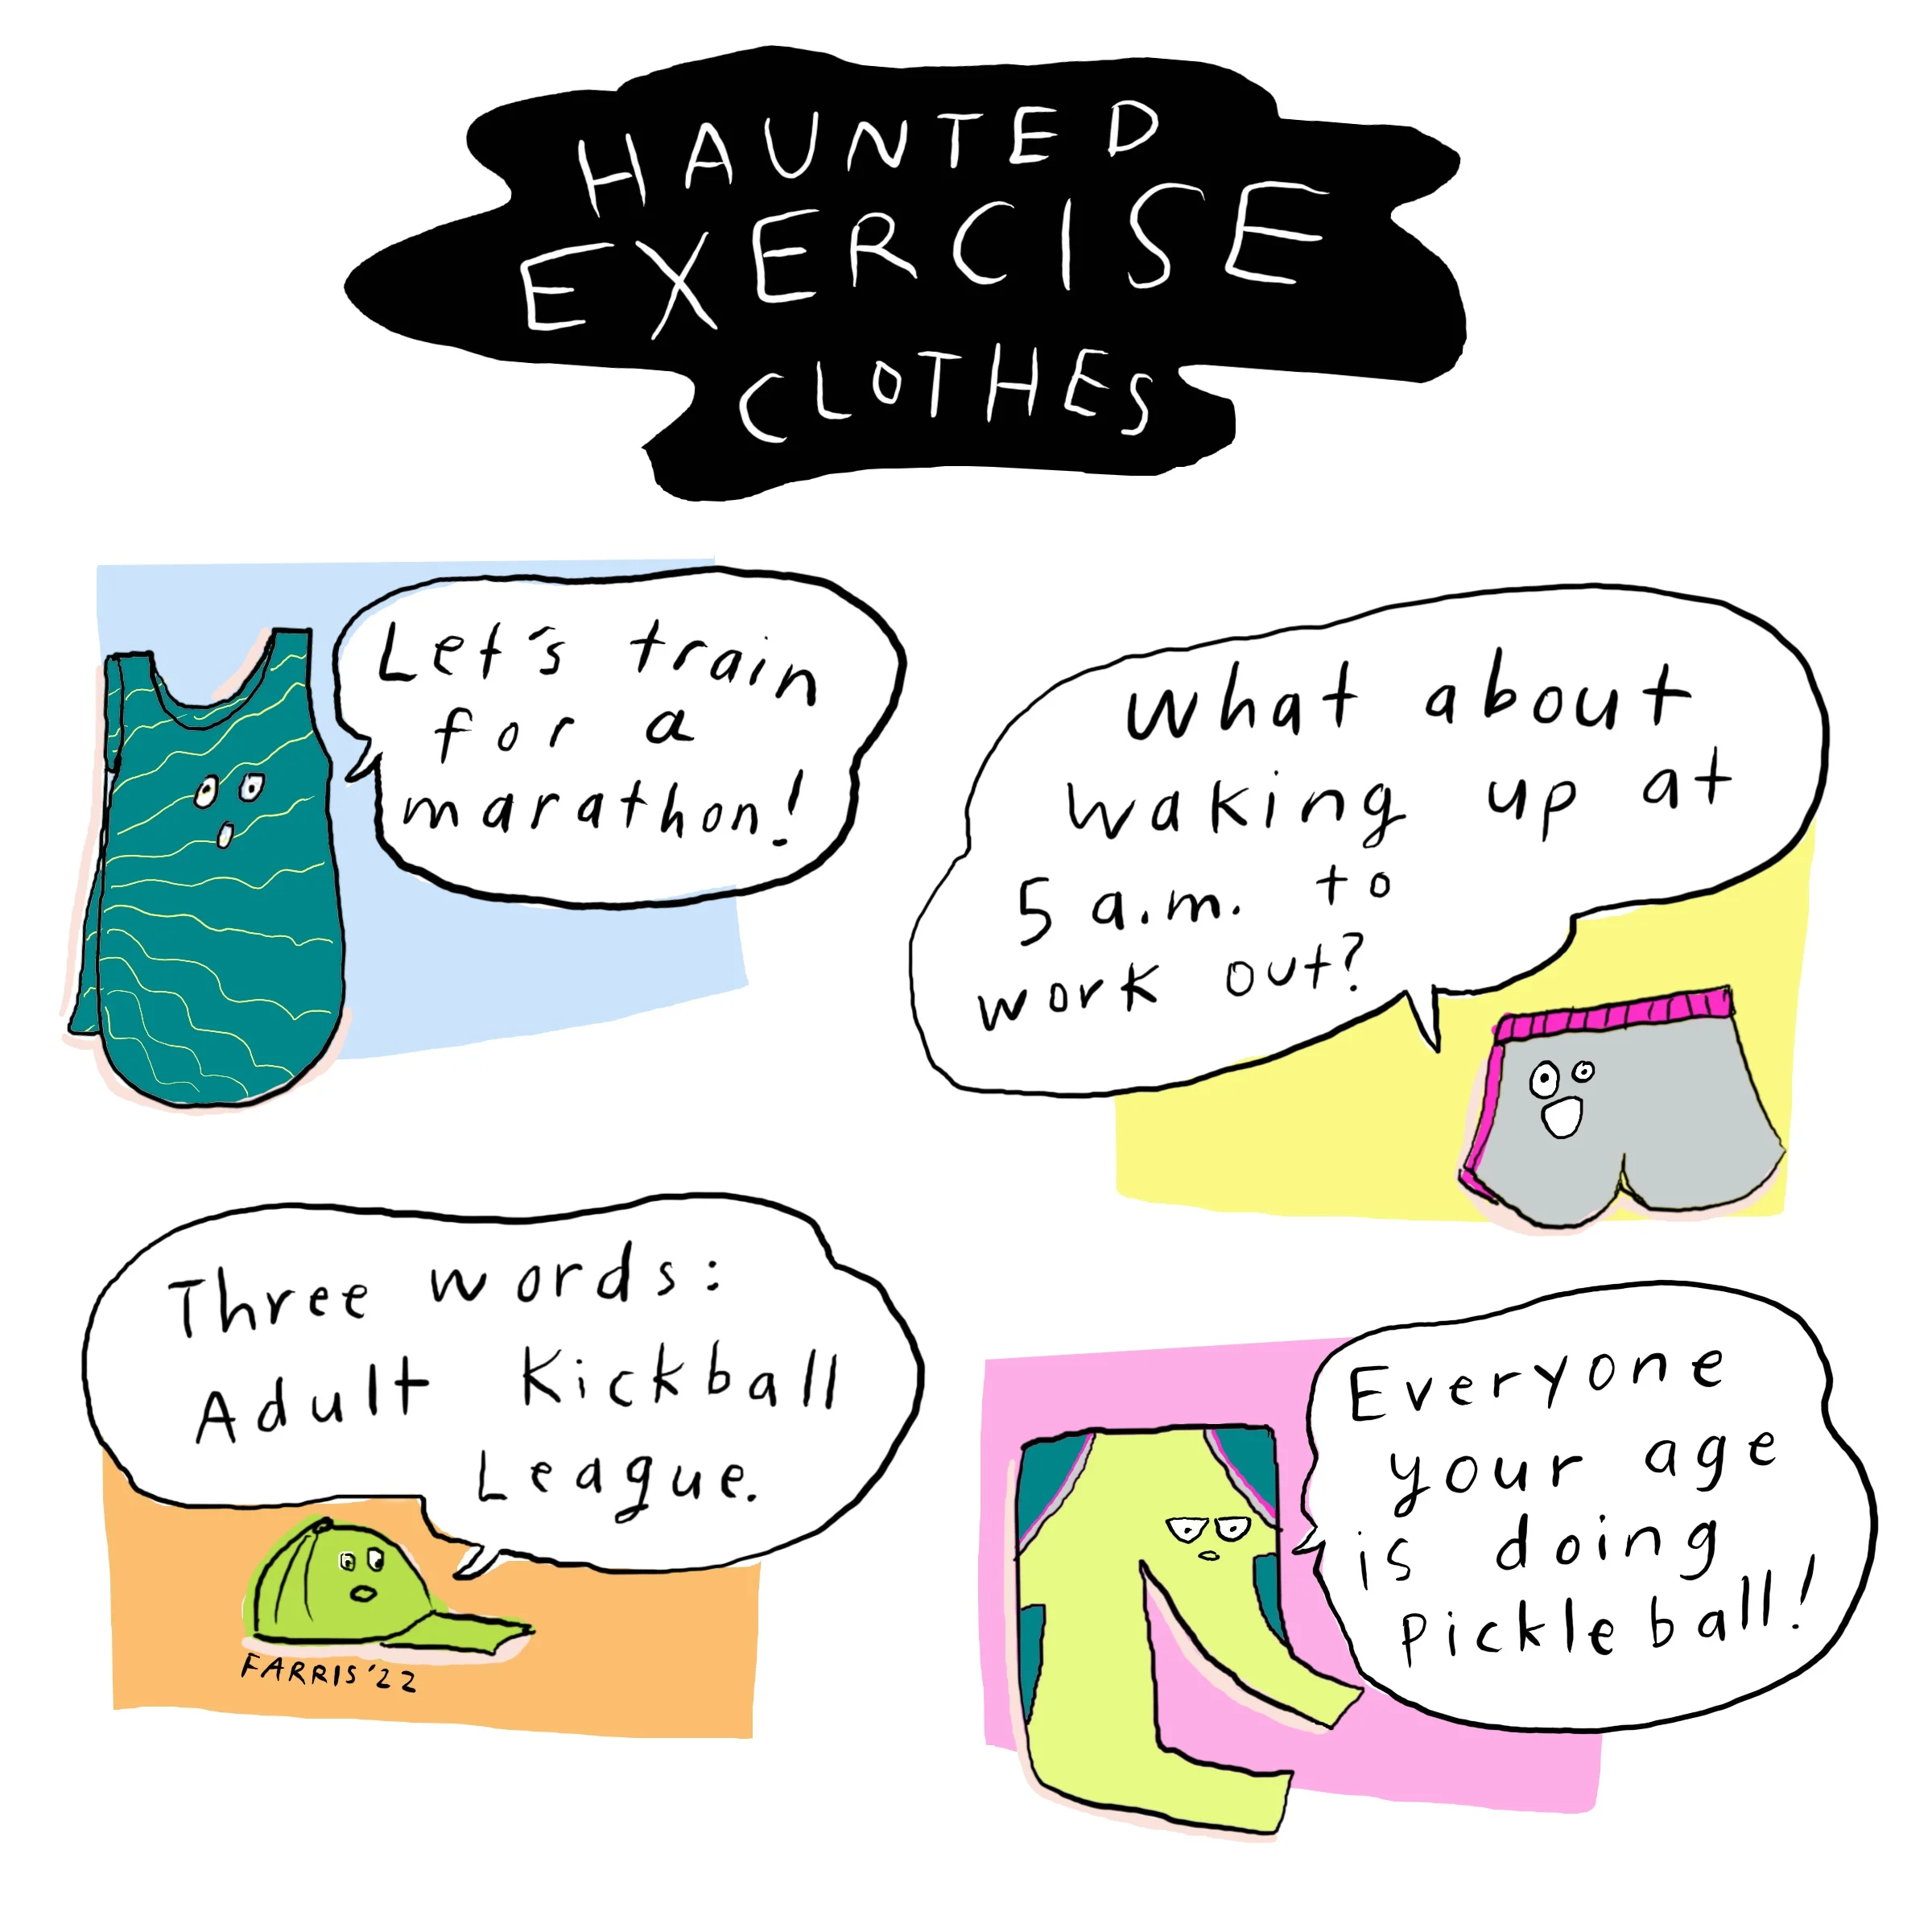 HAUNTED
EXERCISE
CLOTHES
Let's train
for a
marathon!
What about
waking up at
5 a.m. to
work out?
Three words:
Adult Kickball
League.
FARRIS '22
Everyone
your age
is doing
pickleball!